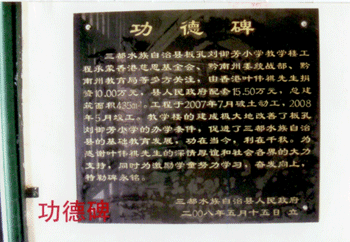 功德碑
三都水族自治县板孔刘御芳小学教学楼工
程承蒙香港慈恩基金会、黔南州委统战部、黔
南州教育局等多方关注，由香港叶伟祺先生捐
资10.00万元，县人民政府配套15.50万元，总建
筑面积435m²，工程于2007年7月破土动工，2008
年5月竣工。教学楼的建成极大地改善了板孔
刘御芳小学的办学条件，促进了三都水族自治
县的基础教育发展，功在当今，利在千秋。为
感谢叶伟祺先生的深情厚谊和社会各界的大力
支持，同时为激励学童努力学习，奋发向上，
特勒碑永铭。
三都水族自治县人民政府
二00八年五月十五日 立
功德碑